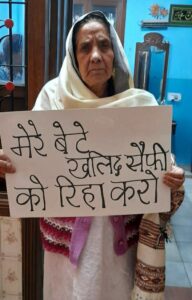 मेरे बेटे
खालिद सैफी
को रिहा करो